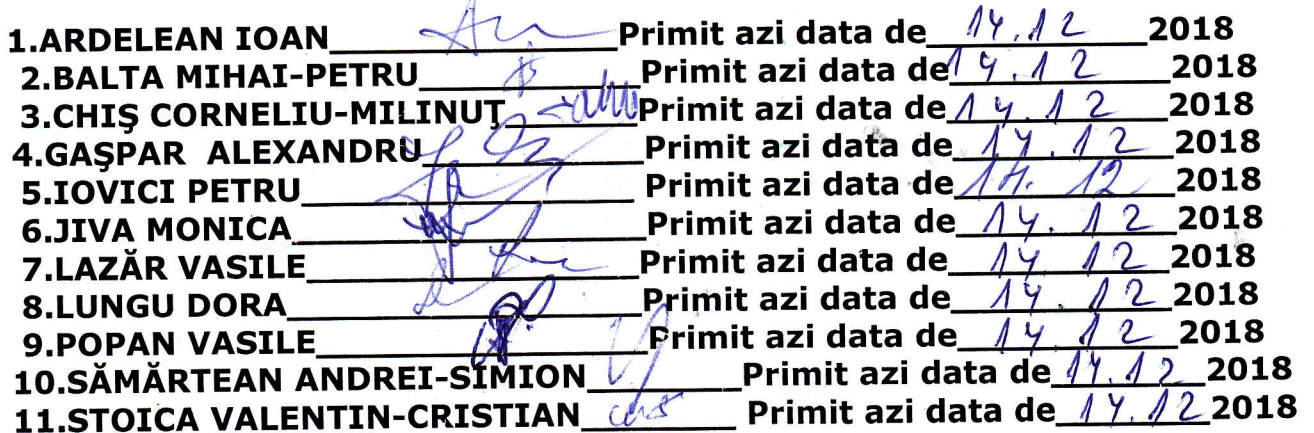 1.ARDELEAN IOAN____________Primit azi data de 14.12 2018
2.BALTA MIHAI-PETRU____________Primit azi data de 14.12 2018
3.CHIŞ CORNELIU-MILINUŢ________Primit azi data de 14.12 2018
4.GAŞPAR ALEXANDRU____________Primit azi data de 14.12 2018
5.IOVICI PETRU____________Primit azi data de 14.12 2018
6.JIVA MONICA____________Primit azi data de 14.12 2018
7.LAZĂR VASILE____________Primit azi data de 14.12 2018
8.LUNGU DORA____________Primit azi data de 14.12 2018
9.POPAN VASILE____________Primit azi data de 14.12 2018
10.SĂMĂRTEAN ANDREI-SIMION________Primit azi data de 14.12 2018
11.STOICA VALENTIN-CRISTIAN________Primit azi data de 14.12 2018